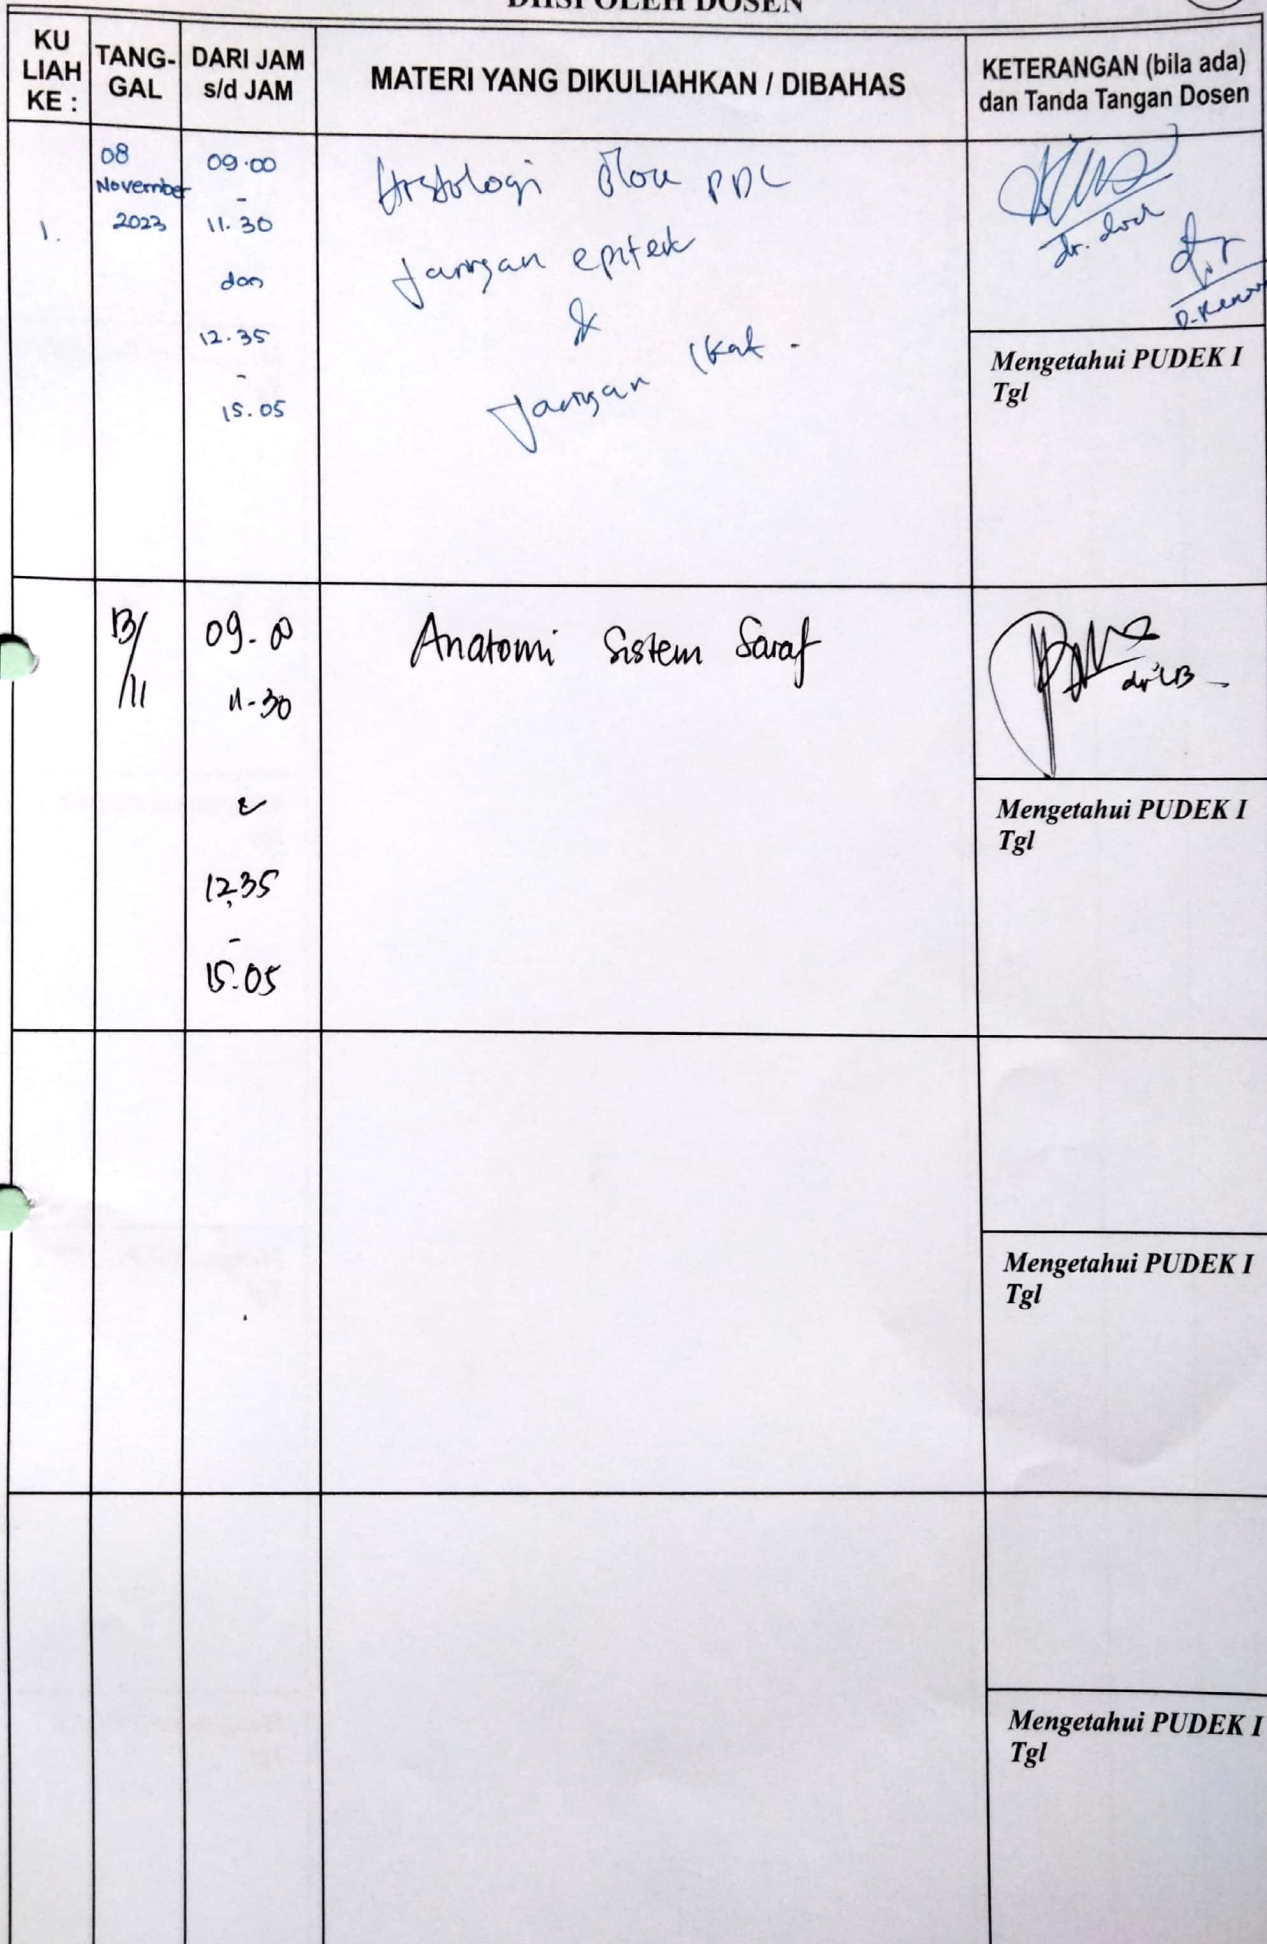 DIISI OLEH DOSEN
KU
LIAH
KE :
TANG-
GAL
DARI JAM
s/d JAM
MATERI YANG DIKULIAHKAN / DIBAHAS
KETERANGAN (bila ada)
dan Tanda Tangan Dosen
1.
08
November
2023
09.00
-
11.30
dan
12.35
-
15.05
Histologi Blok PPL
Jaringan epitel
&
Jaringan Ikat.
Mengetahui PUDEK I
Tgl
13/
/11
09-00
11-30
12.35
-
15.05
Anatomi Sistem Saraf
Mengetahui PUDEK I
Tgl
Mengetahui PUDEK I
Tgl
Mengetahui PUDEK I
Tgl